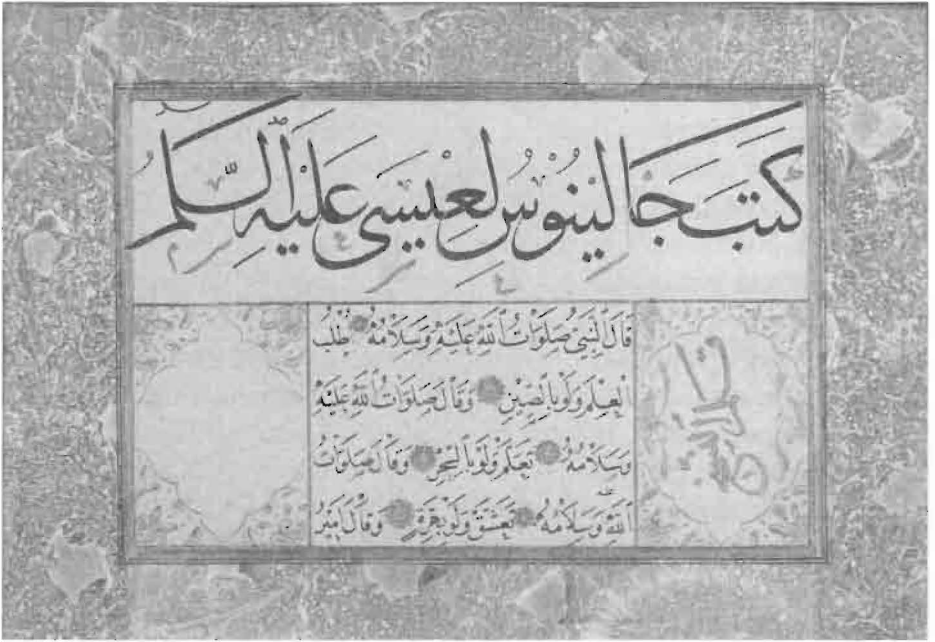 كَتَبَ جَالِينُوسُ لِعِيسَى عَلَيْهِ السَّلَم
قَالَ النَّبِيُّ صَلَوَاتُ اللهِ عَلَيْهِ وَسَلَامُهُ
الْعِلْمَ وَلَوْ بِالصِّينِ وَقَالَ صَلَوَاتُ اللهِ عَلَيْهِ
وَسَلَامُهُ تَعَلَّمْ وَلَوْ وَقَالَ صَلَوَاتُ
اللهِ وَسَلَامُهُ تَعَشَّقْ وَلَوْ وَقَالَ اَمِيرُ